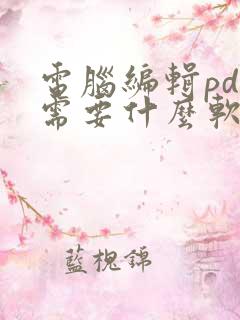 電腦編輯pd
需要什麼軟
藍槐錦